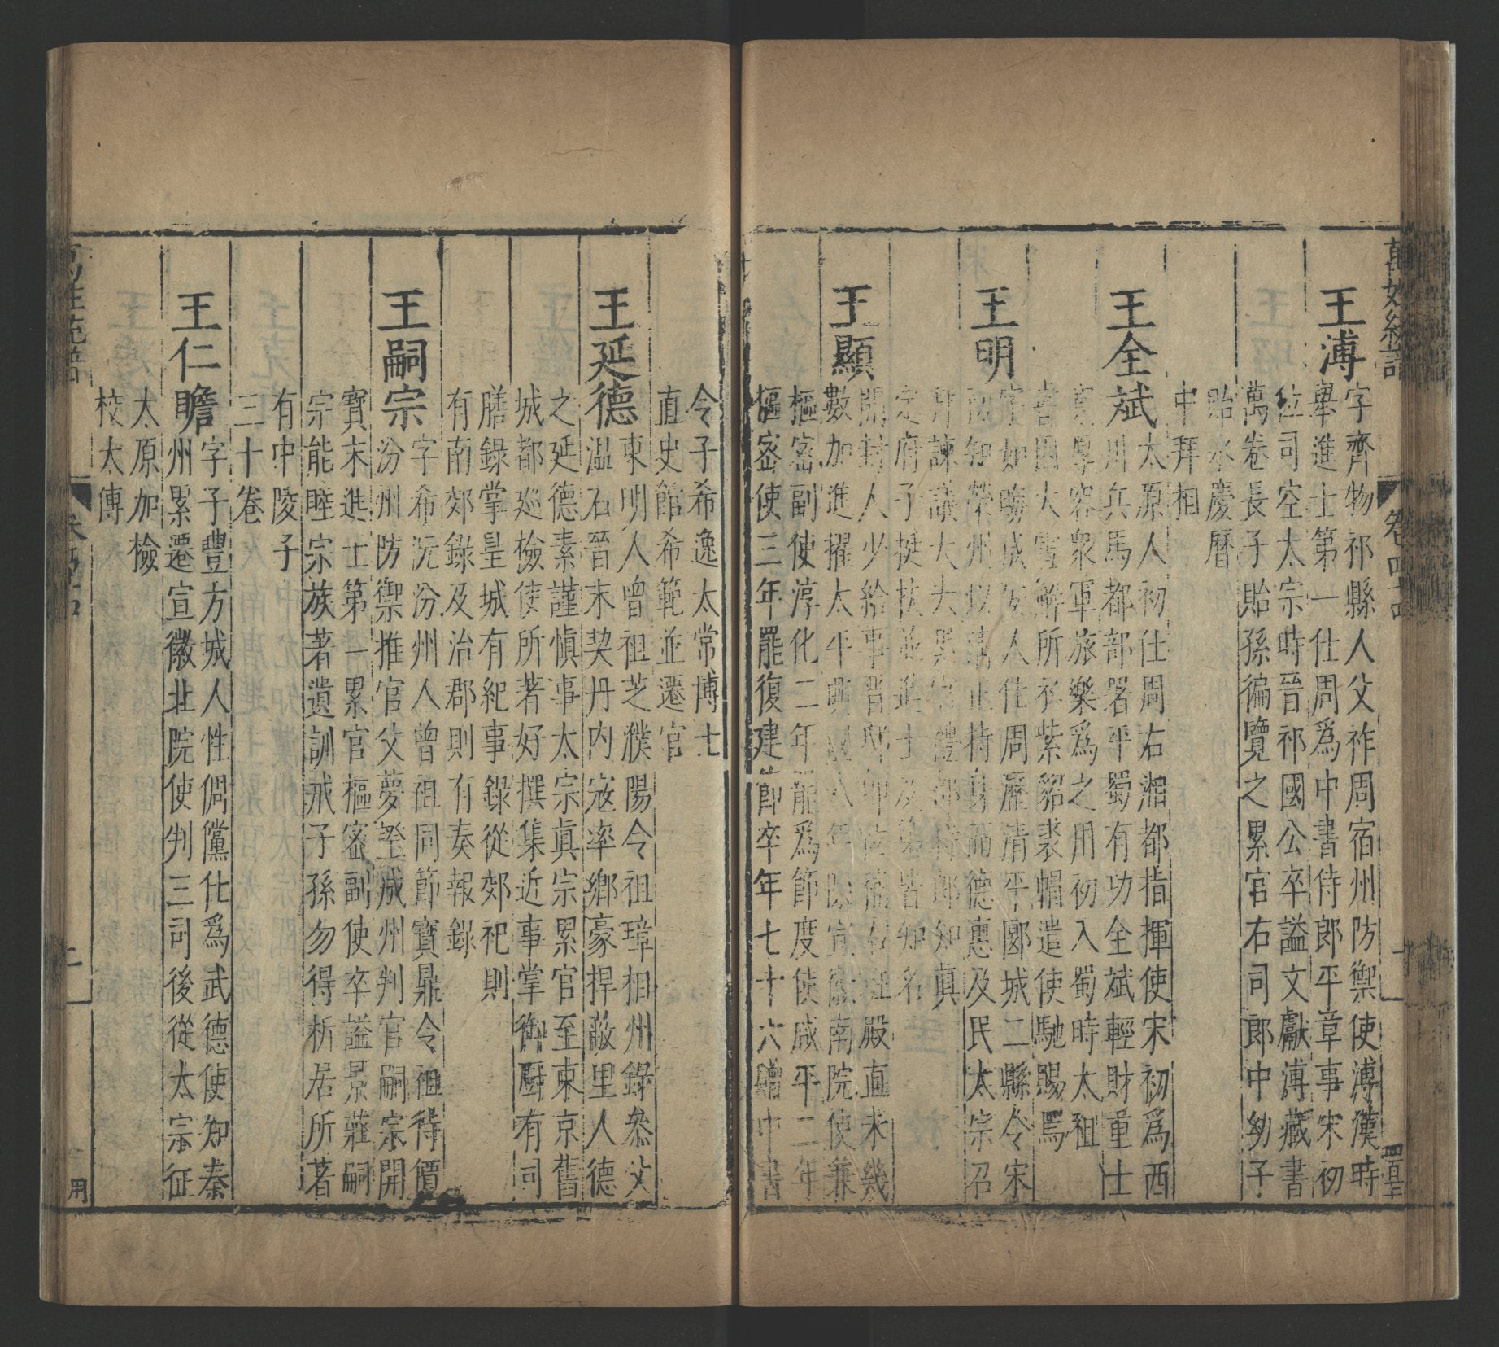 萬姓統譜
卷四
王溥
字齊物祁縣人父祚周宿州防禦使溥漢時
舉進士第一仕周為中書侍郎平章事宋初
位司空太宗時晉祁國公卒謚文獻溥藏書
萬卷長子貽孫徧覽之累官右司郎中幼子
貽永慶曆
中拜相
王全斌
太原人初仕周右湘都指揮使宋初為西
川兵馬都部署平蜀有功全斌輕財重士
寬厚容眾軍旅樂為之用初入蜀時太祖
大雪解所衣紫貂裘帽遣使馳賜焉
王明
字如晦成安人仕周歷清平郾城二縣令宋
德惠及民太宗召
諫議大夫禮部侍郎知真
定府子挺扶並進士及第皆知名
王顯
開封人少給事晉邸殿直未幾
數加進擢太平興國八年除宣徽南院使兼
樞密副使淳化二年罷為節度使咸平二年
樞密使三年罷復建節卒年七十六贈中書
令子希逸太常博士
直史館希範並遷官
王延德
東明人曾祖芝濮陽令祖璋相州錄叅父
溫石晉末契丹內宼率鄉豪捍敵里人德
之延德素謹慎事太宗眞宗累官至東京舊
城都巡檢使所著好撰集近事掌御厨有司
膳錄掌皇城有紀事錄從郊祀則
有南郊錄及治郡則有奏報錄
王嗣宗
字希沅汾州人曾祖同節寶鼎令祖待價
汾州防禦推官父夢登成州判官嗣宗開
寶末進士第一累官樞密副使卒謚景莊嗣
宗能睦宗族著遺訓戒子孫勿得析居所著
有中陵子
三十卷
王仁瞻
字子豐方城人性倜儻仕為武德使知秦
州累遷宣徽北院使判三司後從太宗征
太原加檢
校太傅